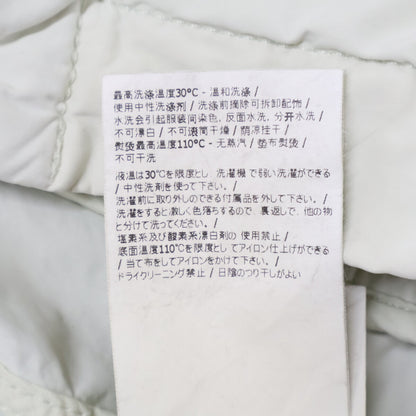 最高洗涤温度30°C - 温和洗涤 /
使用中性洗涤剂 / 洗涤前摘除可拆卸配饰 /
水洗会引起服装间染色, 反面水洗, 分开水洗 /
不可漂白 / 不可滚筒干燥 / 荫凉挂干 /
熨烫最高温度110°C - 无蒸汽 / 垫布熨烫 /
不可干洗
液温は30℃を限度とし、洗濯機で弱い洗濯ができる
/ 中性洗剤を使って下さい。/
洗濯前に取り外しのできる付属品を外して下さい。/
洗濯をすると激しく色落ちするので、裏返して、他の物
と分けて洗ってください。/
塩素系及び酸素系漂白剤の 使用禁止 /
底面温度110℃を限度としてアイロン仕上げができる
/ 当て布をしてアイロンをかけて下さい。/
ドライクリーニング禁止 / 日陰のつり干しがよい